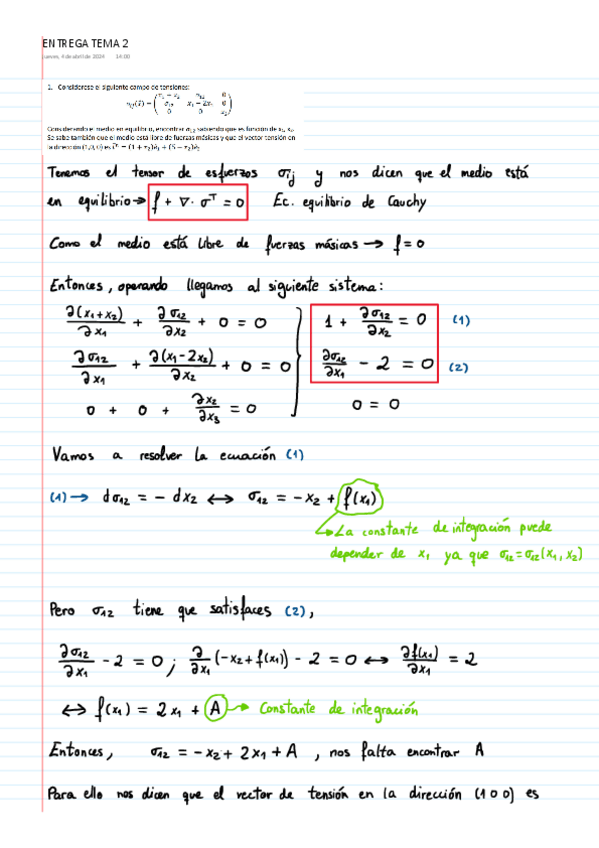 ENTREGA TEMA 2
jueves, 4 de abril de 2024 14:00
1. Considérese el siguiente campo de tensiones:
Considerando el medio en equilibrio, encontrar σ12 sabiendo que es función de x1, x2.
Se sabe también que el medio está libre de fuerzas másicas y que el vector tensión en
la dirección (1,0,0) es
Tenemos el tensor de esfuerzos σij y nos dicen que el medio está
en equilibrio → f + ∇·σ^T = 0 Ec. equilibrio de Cauchy
Como el medio está libre de fuerzas másicas → f = 0
Entonces, operando llegamos al siguiente sistema:
∂(x1+x2)/∂x1 + ∂σ12/∂x2 + 0 = 0 } 1 + ∂σ12/∂x2 = 0 (1)
∂σ12/∂x1 + ∂(x1-2x2)/∂x2 + 0 = 0 } ∂σ12/∂x1 - 2 = 0 (2)
0 + 0 + ∂x2/∂x3 = 0 } 0 = 0
Vamos a resolver la ecuación (1)
(1) → dσ12 = - dx2 ↔ σ12 = -x2 + f(x1)
↳ La constante de integración puede
depender de x1 ya que σ12 = σ12(x1, x2)
Pero σ12 tiene que satisfaces (2),
∂σ12/∂x1 - 2 = 0 ; ∂/∂x1 (-x2 + f(x1)) - 2 = 0 ↔ ∂f(x1)/∂x1 = 2
↔ f(x1) = 2x1 + A → Constante de integración
Entonces, σ12 = -x2 + 2x1 + A , nos falta encontrar A
Para ello nos dicen que el vector de tensión en la dirección (1 0 0) es